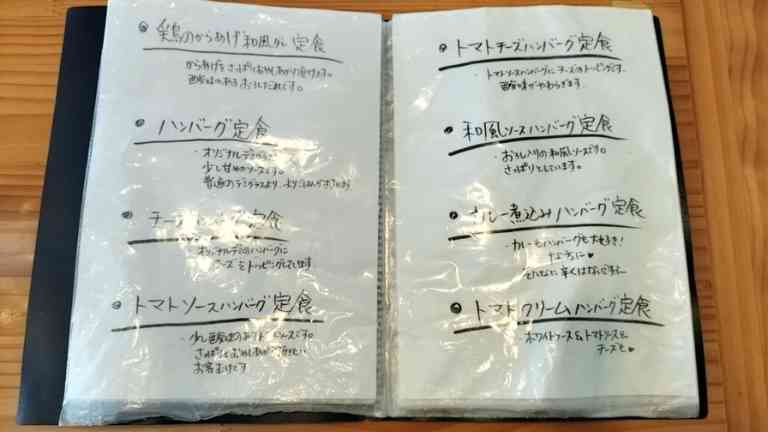 鶏のからあげ和風ダレ定食
からあげを さっぱりお召しあがり頂けます。
酸味のある おろしだれです。
ハンバーグ定食
・オリジナルデミ
少し甘めのソースです。
普通のデミグラスより
チーズハンバーグ定食
・オリジナルデミのハンバーグに
チーズをトッピングしています
トマトソースハンバーグ定食
・少し酸味のあるトマトソースです。
さっぱりとお召しあがり頂きたい
お客様むけです
トマトチーズハンバーグ定食
・トマトソースハンバーグにチーズのトッピングです。
酸味がやわらぎます。
和風ソースハンバーグ定食
・おろし入りの和風ソースです。
さっぱりとしています。
カレー煮込みハンバーグ定食
・カレーもハンバーグも大好き!
な方に♥
そんなに辛くはないですよ~
トマトクリームハンバーグ定食
・ホワイトソース&トマトソースと
チーズと♥